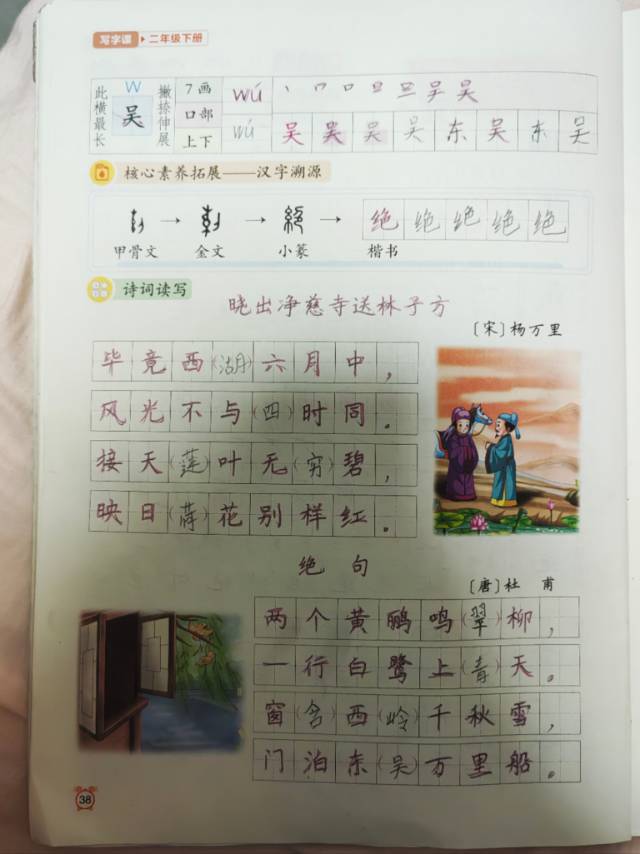 写字课 二年级下册
此横最长 W 吴 撇捺伸展 7画 口部 上下 wú wú
吴 吴 吴 吴 东 吴 东 吴
核心素养拓展——汉字溯源
→ → → 绝 绝 绝 绝 绝
甲骨文 金文 小篆 楷书
诗词读写
晓出净慈寺送林子方
〔宋〕杨万里
毕竟西(湖)六月中，
风光不与(四)时同。
接天(莲)叶无(穷)碧，
映日(荷)花别样红。
绝句
〔唐〕杜 甫
两个黄鹂鸣(翠)柳，
一行白鹭上(青)天。
窗(含)西(岭)千秋雪，
门泊东(吴)万里船。
38